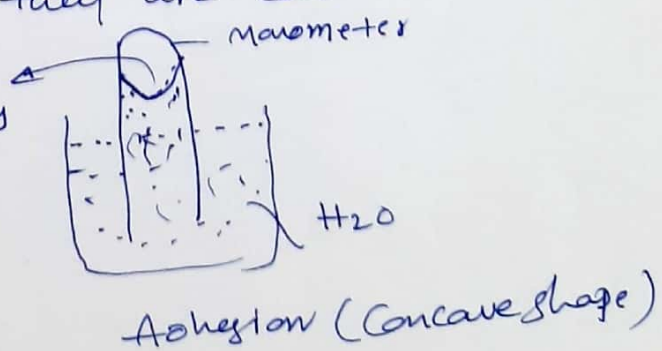 are
Manometer
H2O
Adhesion (Concave shape)